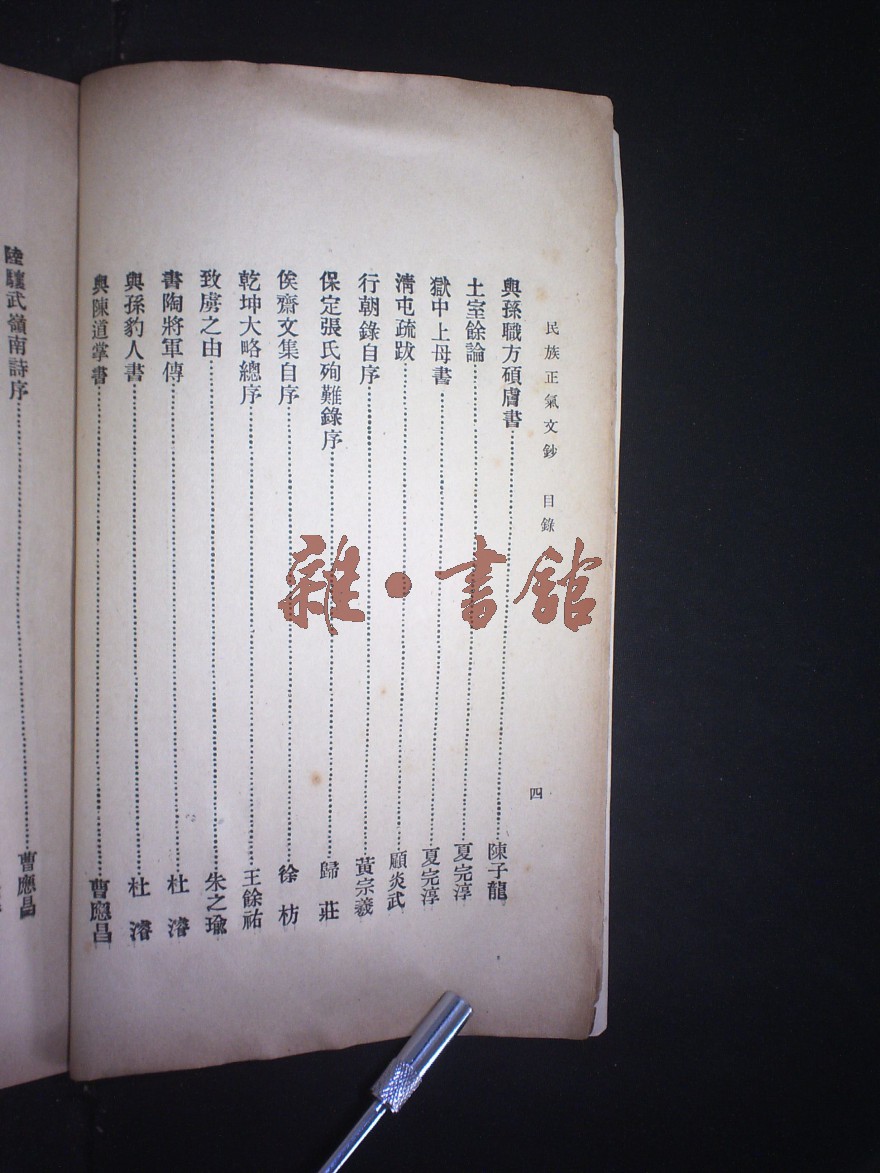 民族正氣文鈔 目錄 四
與孫職方碩膚書 陳子龍
土室餘論 夏完淳
獄中上母書 夏完淳
淸屯疏跋 顧炎武
行朝錄自序 黃宗羲
保定張氏殉難錄序 歸莊
俟齋文集自序 徐枋
乾坤大略總序 王餘祐
致虜之由 朱之瑜
書陶將軍傳 杜濬
與孫豹人書 杜濬
與陳道掌書 曹應昌
陸驤武嶺南詩序 曹應昌
雜·書館